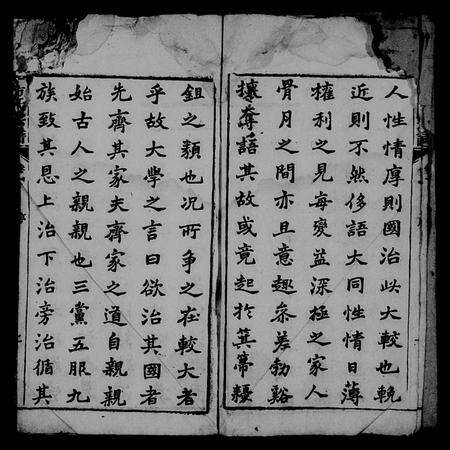 人性情厚則國治此大較也輓
近則不然侈語大同性情日薄
權利之見每變益深極之家人
骨月之間亦且意趣參差勃谿
攘奪語其故或竟起於箕帚耰
鉏之類也况所爭之在較大者
乎故大學之言曰欲治其國者
先齊其家夫齊家之道自親親
始古人之親親也三黨五服九
族致其恩上治下治旁治循其